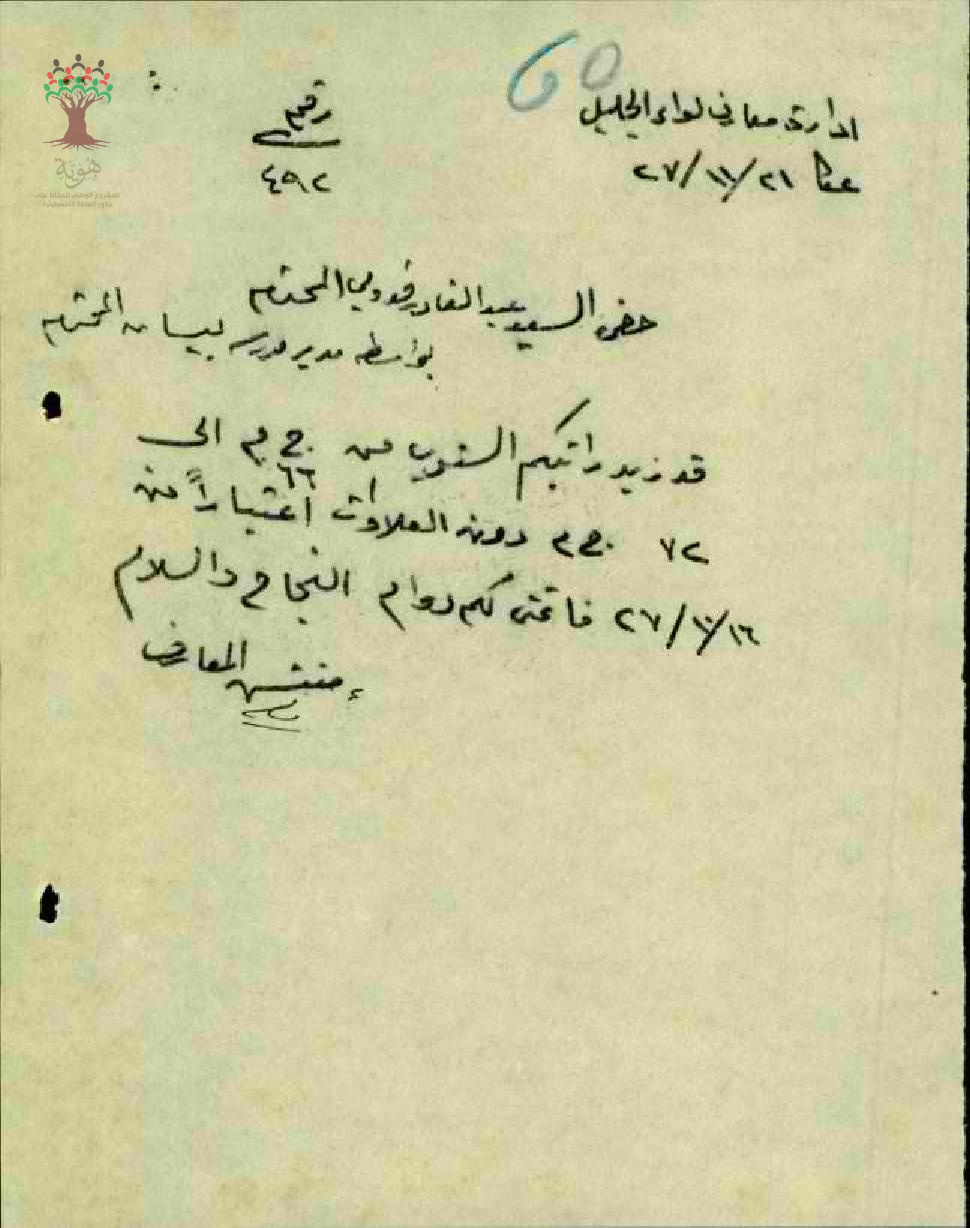 ادارة معارف لواء الجليل
عكا ٢١/١١/٢٧
رقم
٤٩٢
حضرة السيد عبد القادر المحترم
بواسطة مدير مدرسة بيسان المحترم
قد زيد راتبكم السنوي من ٦٦ ج م الى
٧٢ ج م دون العلاوات اعتباراً من
١٦/١٠/٢٧ فاتمنى لكم دوام النجاح والسلام
مفتش المعارف
هُويَّة